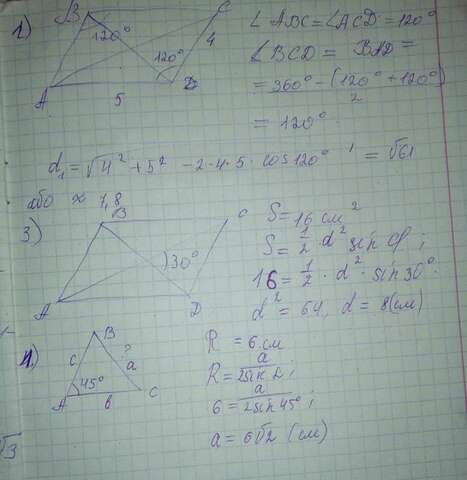 1)
B
C
120°
120°
4
A
5
D
∠ABC = ∠ACD = 120°
∠BCD = BAD =
= 360° - (120° + 120°) / 2
= 120°
d₁ = √4² + 5² - 2·4·5 · cos 120° = √61
або ≈ 7,8
3)
B
C
30°
A
D
S = 16 см²
S = 1/2 d² sin φ;
16 = 1/2 · d² · sin 30°
d² = 64, d = 8 (см)
4)
B
c
?
a
45°
A
b
C
R = 6 см
R = a / 2 sin α;
6 = a / 2 sin 45°;
a = 6√2 (см)
√3